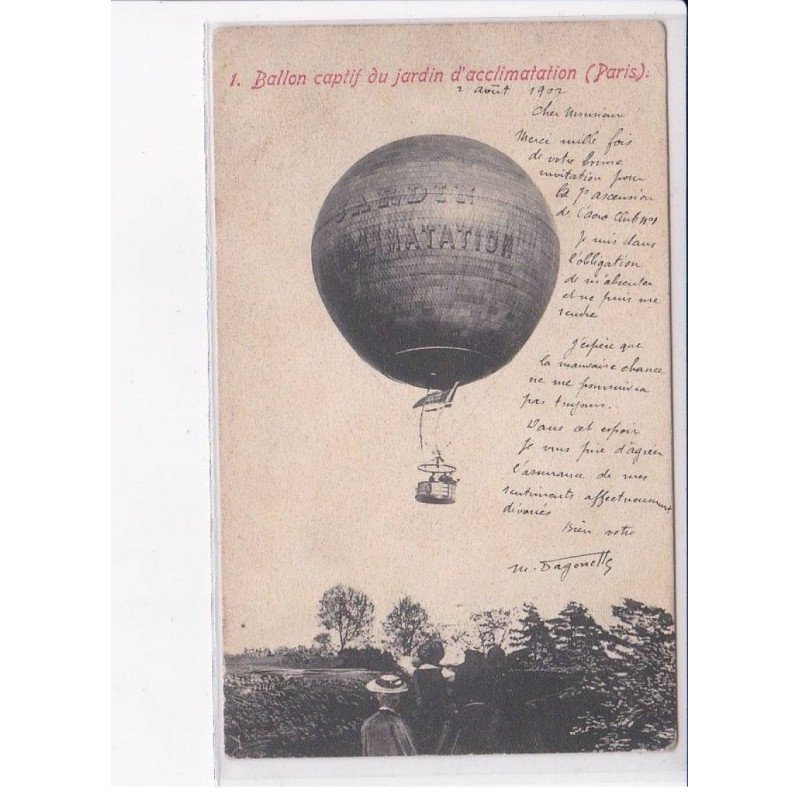 1. Ballon captif du jardin d'acclimatation (Paris).
2 août 1902
Cher Monsieur
Merci mille fois
de votre bonne
invitation pour
la ascension
de l'aéro Club
Je suis dans
l'obligation
de m'absenter
et ne puis me
rendre
J'espère que
la mauvaise chance
ne me poursuivra
pas toujours.
Dans cet espoir
Je vous prie d'agréer
l'assurance de mes
sentiments affectueusement
dévoués
Bien votre
JARDIN
IMATATION